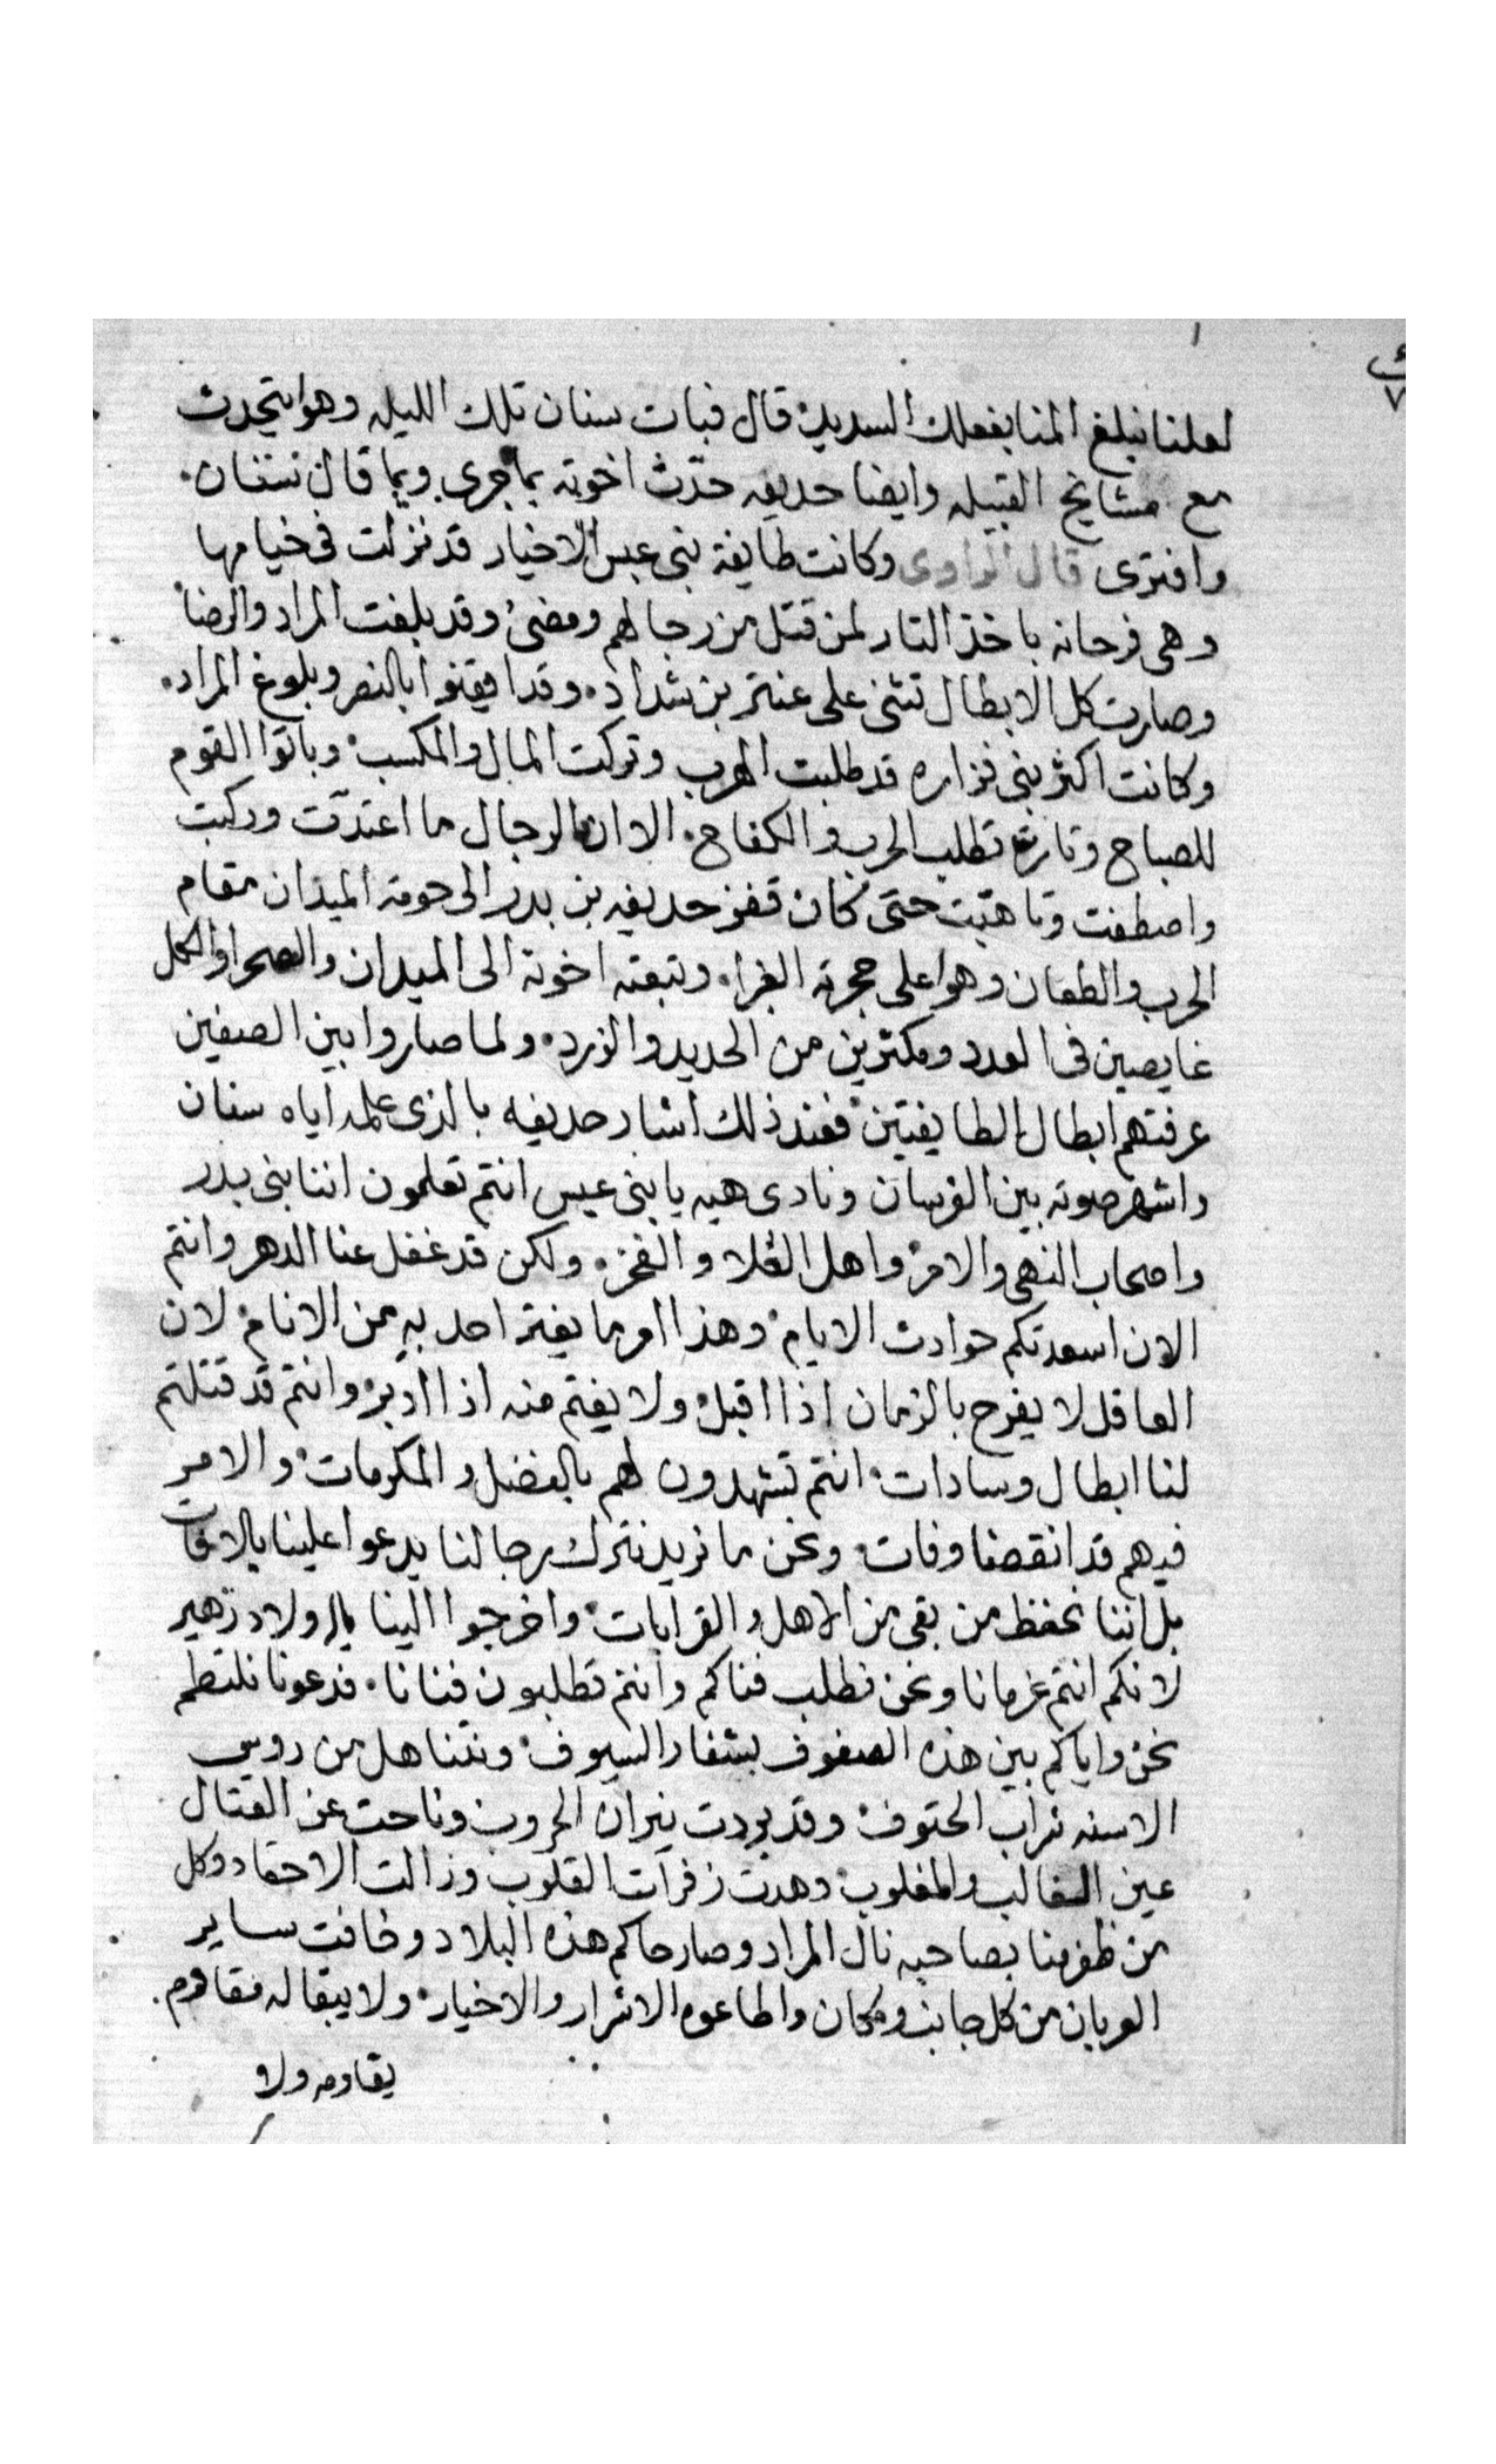 لعلنا نبلغ المنا بفعلك السديد قال فبات سنان تلك الليله وهوا يتحدث
مع مشايخ القبيله وايضا حديفه حدّث اخوته بما جرى وبما قال سنان
وافترى قال الراوى وكانت طايفة بنى عبس الاخيار قد نزلت فى خيامها
وهى فرحانه باخذ التار لمن قتل من رجالهم ومضى وقد بلغت المراد والرضا
وصارت كل الابطال تثنى على عنتر بن شداد وقد ايقنوا بالنصر وبلوغ المراد
وكانت اكثر بنى فزاره قد طلبت الهرب وتركت المال والمكسب وباتوا القوم
للصباح وثارت تطلب الحرب والكفاح الا ان الرجال ما اعتدّت وركبت
واصطفت وتاهبّت حتى كان قفز حديفه بن بدر الى حومة الميدان مقام
الحرب والطعان وهوا على حجرته الغبرا وتبعته اخوته الى الميدان والصحرا والكل
غايصين فى العدد ومكترين من الحديد والزرد ولما صاروا بين الصفين
عرفتهم ابطال الطايفيتين فعند ذلك اشار حديفه بالذى علمه اياه سنان
واشهر صوته بين الفرسان ونادى هيه يا بنى عبس انتم تعلمون اننا بنى بدر
واصحاب النهى والامر واهل العُلا والفخر ولكن قد غفل عنا الدهر وانتم
الان اسعدتكم حوادث الايام وهذا امر ما يغتر احد به من الانام لان
العاقل لا يفرح بالزمان اذا اقبل ولا يغتم منه اذا ادبر وانتم قد قتلتم
لنا ابطال وسادات انتم تشهدون لهم بالفضل والمكرمات والامر
فيهم قد انقضا وفات ونحن ما نريد نترك رجالنا يدعوا علينا بالافات
بل اننا نحفظ من بقى من الاهل والقرابات واخرجوا الينا يال ولاد زهير
لانكم انتم غرمانا ونحن نطلب فناكم وانتم تطلبون فنانا فدعونا نلتطم
نحن واياكم بين هذه الصفوف بشفار السيوف ونتناهل من روس
الاسنه شراب الحتوف وقد بردت نيران الحروب وناحت عن القتال
عين الغالب والمغلوب وهدت زفرات القلوب وزالت الاحقاد وكل
من ظفر منا بصاحبه نال المراد وصار حاكم هذه البلاد وخافت ساير
العربان من كل جانب ومكان واطاعوه الاشرار والاخيار ولا يبقا له مقاوم
يقاومه ولا